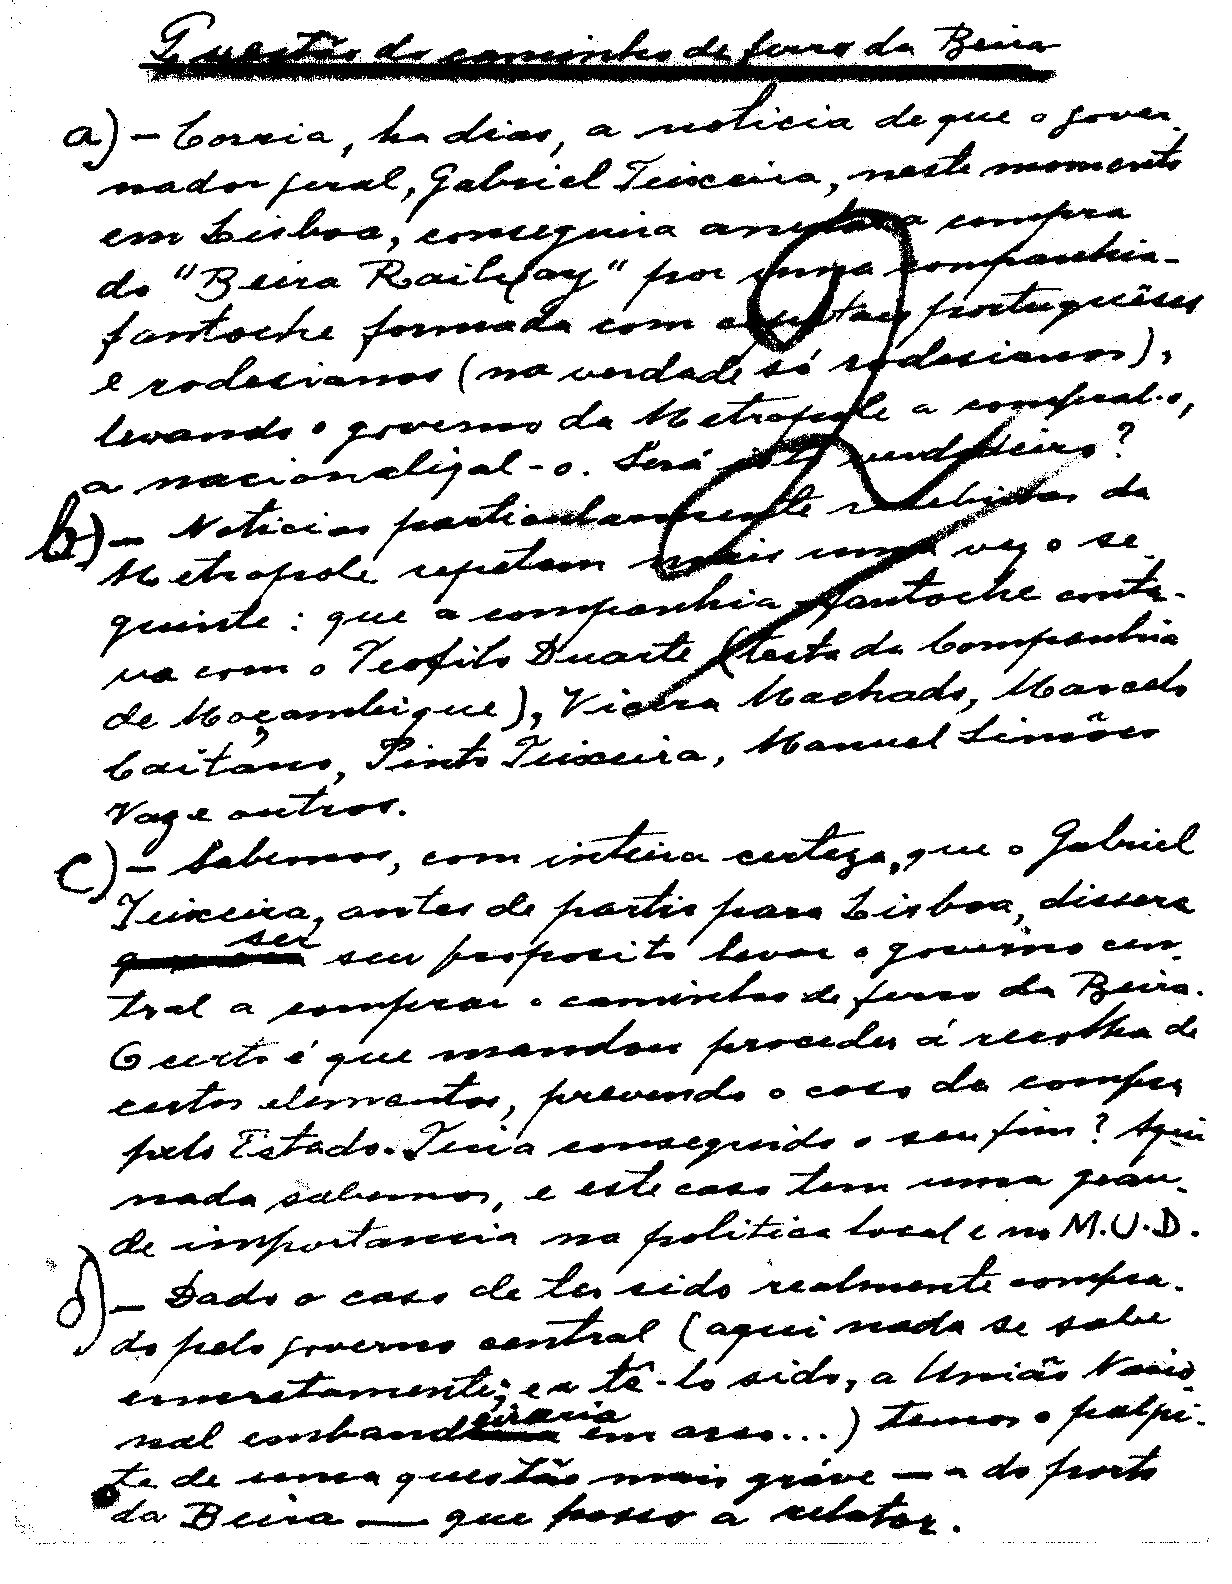 Questão do caminho de ferro da Beira
a) — Corria, ha dias, a noticia de que o gover-
nador geral, Gabriel Teixeira, neste momento
em Lisboa, conseguira anular a compra
do "Beira Railway" por uma companhia-
fantoche formada com capitais portuguêses
e rodesianos (na verdade só rodesianos),
levando o governo da Metropole a compral-o,
a nacionalizal-o. Será isto verdadeiro?
b) — Noticias particularmente recebidas da
Metropole repetem mais uma vez o se-
guinte: que a companhia fantoche conta-
va com o Teofilo Duarte (testa da Companhia
de Moçambique), Vieira Machado, Marcelo
Caitano, Pinto Teixeira, Manuel Simões
Vaz e outros.
c) — Sabemos, com inteira certeza, que o Gabriel
Teixeira, antes de partir para Lisboa, dissera
ser seu proposito levar o governo cen-
tral a comprar o caminho de ferro da Beira.
O certo é que mandou proceder á recolha de
certos elementos, prevendo o caso da compra
pelo Estado. Teria conseguido o seu fim? Aqui
nada sabemos, e este caso tem uma gran-
de importancia na politica local e no M.U.D.
d) — Dado o caso de ter sido realmente compra-
do pelo governo central (aqui nada se sabe
concretamente; e a tê-lo sido, a União Nacio-
nal embandeiraria em arco...) temos o palpi-
te de uma questão mais gráve — a do porto
da Beira — que passo a relatar.